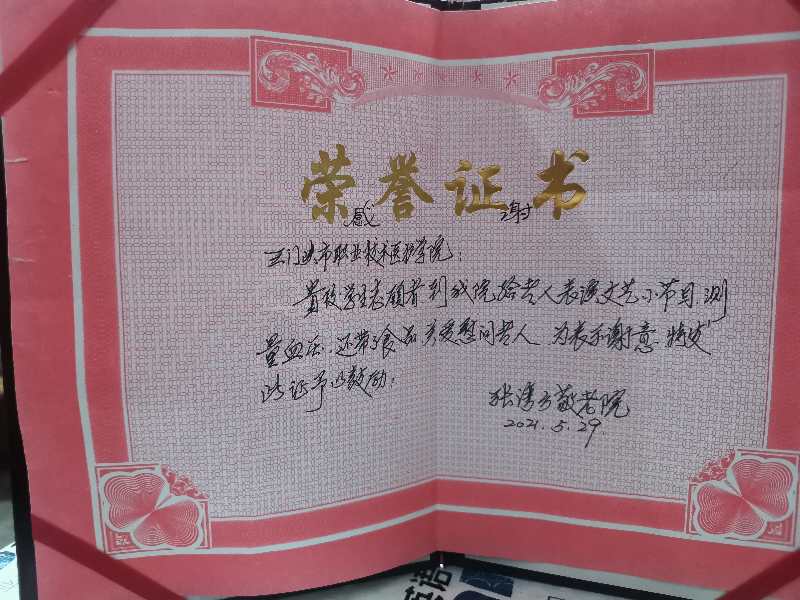 荣誉证书
感 谢
三门峡市职业技术医护学院：
贵校学生志愿者到我院给老人表演文艺小节目，测
量血压，还带了食品关爱慰问老人，为表示谢意，特发
此证予以鼓励：
敬老院
2021.5.29